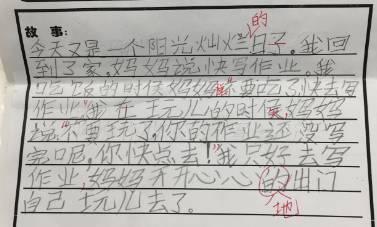 的
故事:
今天又是一个阳光灿烂日子。我回
到了家,妈妈说快写作业。我
吃饭的时候妈妈 要吃了快去写
作业"我在玩儿的时候,妈妈
说"不要玩了,你的作业还没写
完呢,你快点去!"我只好去写
作业,妈妈开开心心的出门
自己玩儿去了。
地